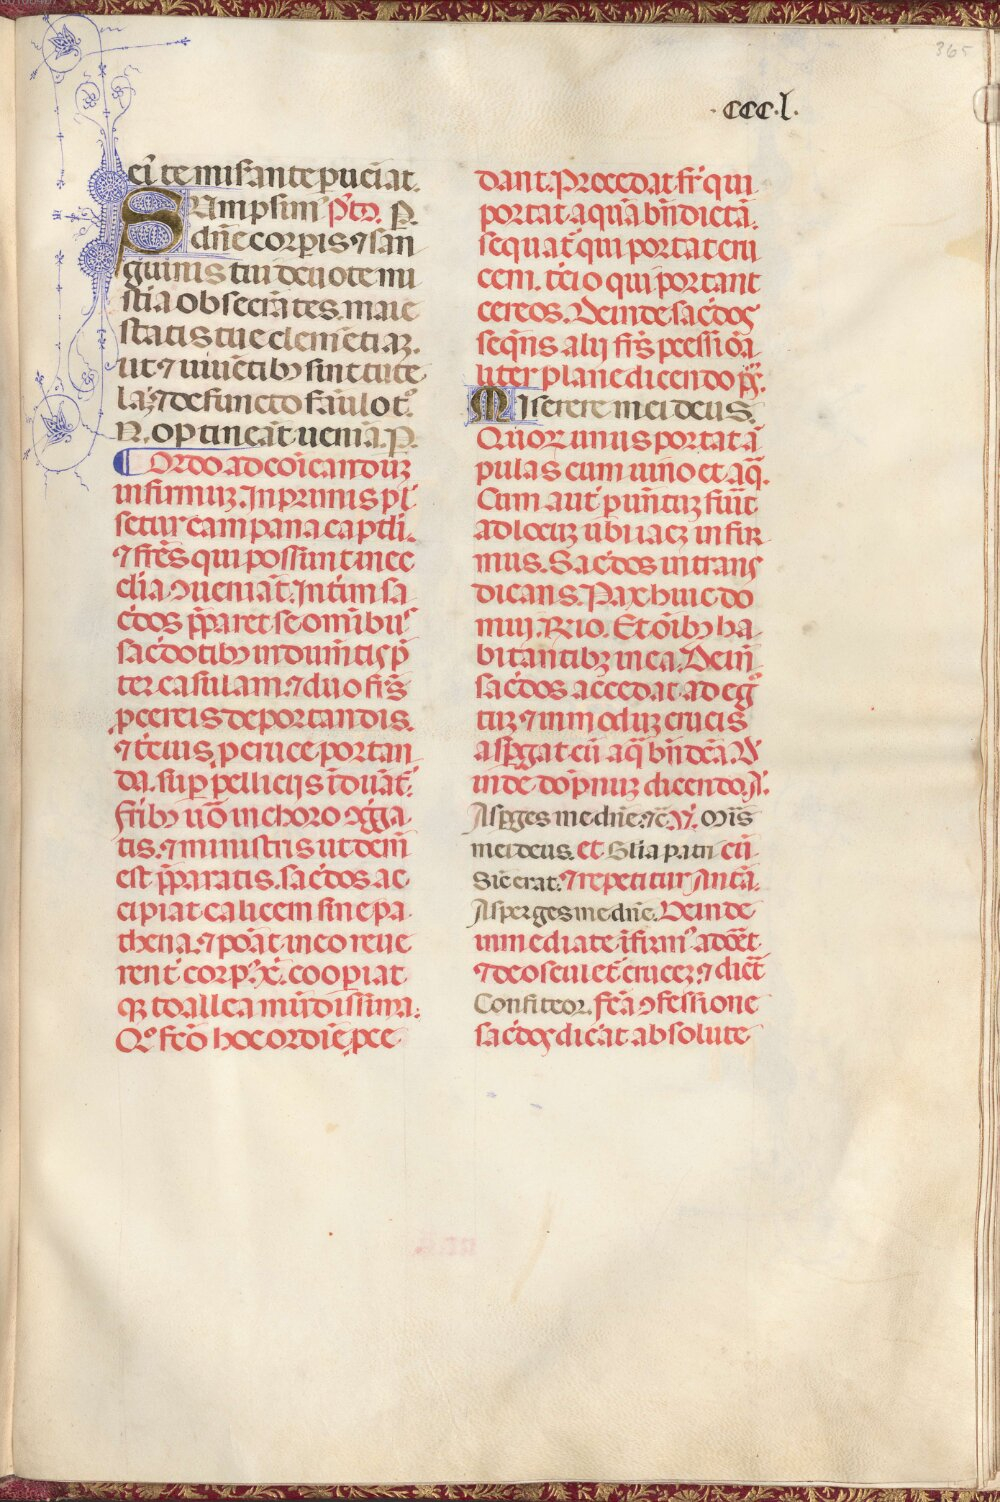 365
·ccc·l·
ei̅ te miserante p̲ueiat.
SUmpsim᷒ pꝰtꝰ. P.
dn̅e corp̲is ⁊ san
guinis tui deuote mi
steria obsecrantes maie
statis tue clem̅etiaꝫ.
ut ⁊ uiue̅tibꝫ sint tute
laꝫ ⁊ defuncto fa̅ulo t᷒.
N. optinea̅t uenia̅. P.
Ordo ad co̅icanduꝫ
infirmuꝫ. Inprimis pl̅
setur campana captl̅i.
⁊ fr̅es qui possunt in ec
cl̅ia ꝯueniat̅. Interim sa
c̅dos p̅paret se omibu᷒
sac̅dotibꝫ indume̅tis p̅
ter casulam. ⁊ duo fr̅s
p̲ cereis deportandis.
⁊ tc̅ius p̲ cruce portan
da. sup̲ pelliciis i̅dua̅t᷒.
fr̅ibꝫ uo̅ in choro ꝯg̅ga
tis. ⁊ ministris ut dem̅
est p̅paratis. sac̅dos ac
cipiat calicem sine pa
thena. ⁊ pon̅at in eo reue
rent᷒ corp᷒ x̅. coop̲iat
qꝫ toallea mu̅dissima.
Qo fc̅o hoc ordi̅e p̲ce
dant. Procedat fr̅ qui
portat aqua̅ bn̅dicta̅.
sequat᷒ qui portat cru
cem. tc̅io qui portant
cereos. Deinde sac̅dos
seqn̅s alij fr̅s p̲cessio̅a
liter plane dicendo p̅s.
MIserere mei deus.
Quoꝝ unus portat a̅
pulas cum uino et aq̅.
Cum aut̅ p̲uentuꝫ fu̅it
ad locuꝫ ubi iacꝫ infir
mus. Sac̅dos intrans
dicans. Pax huic do
mui. ꝶio. Et o̅ibꝫ ha
bitantibꝫ in ea. Dein̅
sac̅dos accedat ad eg̅
tuꝫ ⁊ in moduꝫ crucis
asp̲gat eu̅ aq̅ bn̅dc̅a. D
inde dop̅nuꝫ dicendo. A̅.
Asp̲ges me dn̅e. ⁊c̅. V̅. Mis̅
mei deus. et Gl̅ia patri cu̅
Sic̅ erat. ⁊ repetitur Anta̅.
Asperges me dn̅e. Deinde
inmediate i̅firm᷒ adoret
⁊ deosculet᷒ cruceꝫ. ⁊ dic̅t
Confiteor. fc̅a ꝯfessione
sac̅dos dicat absolute